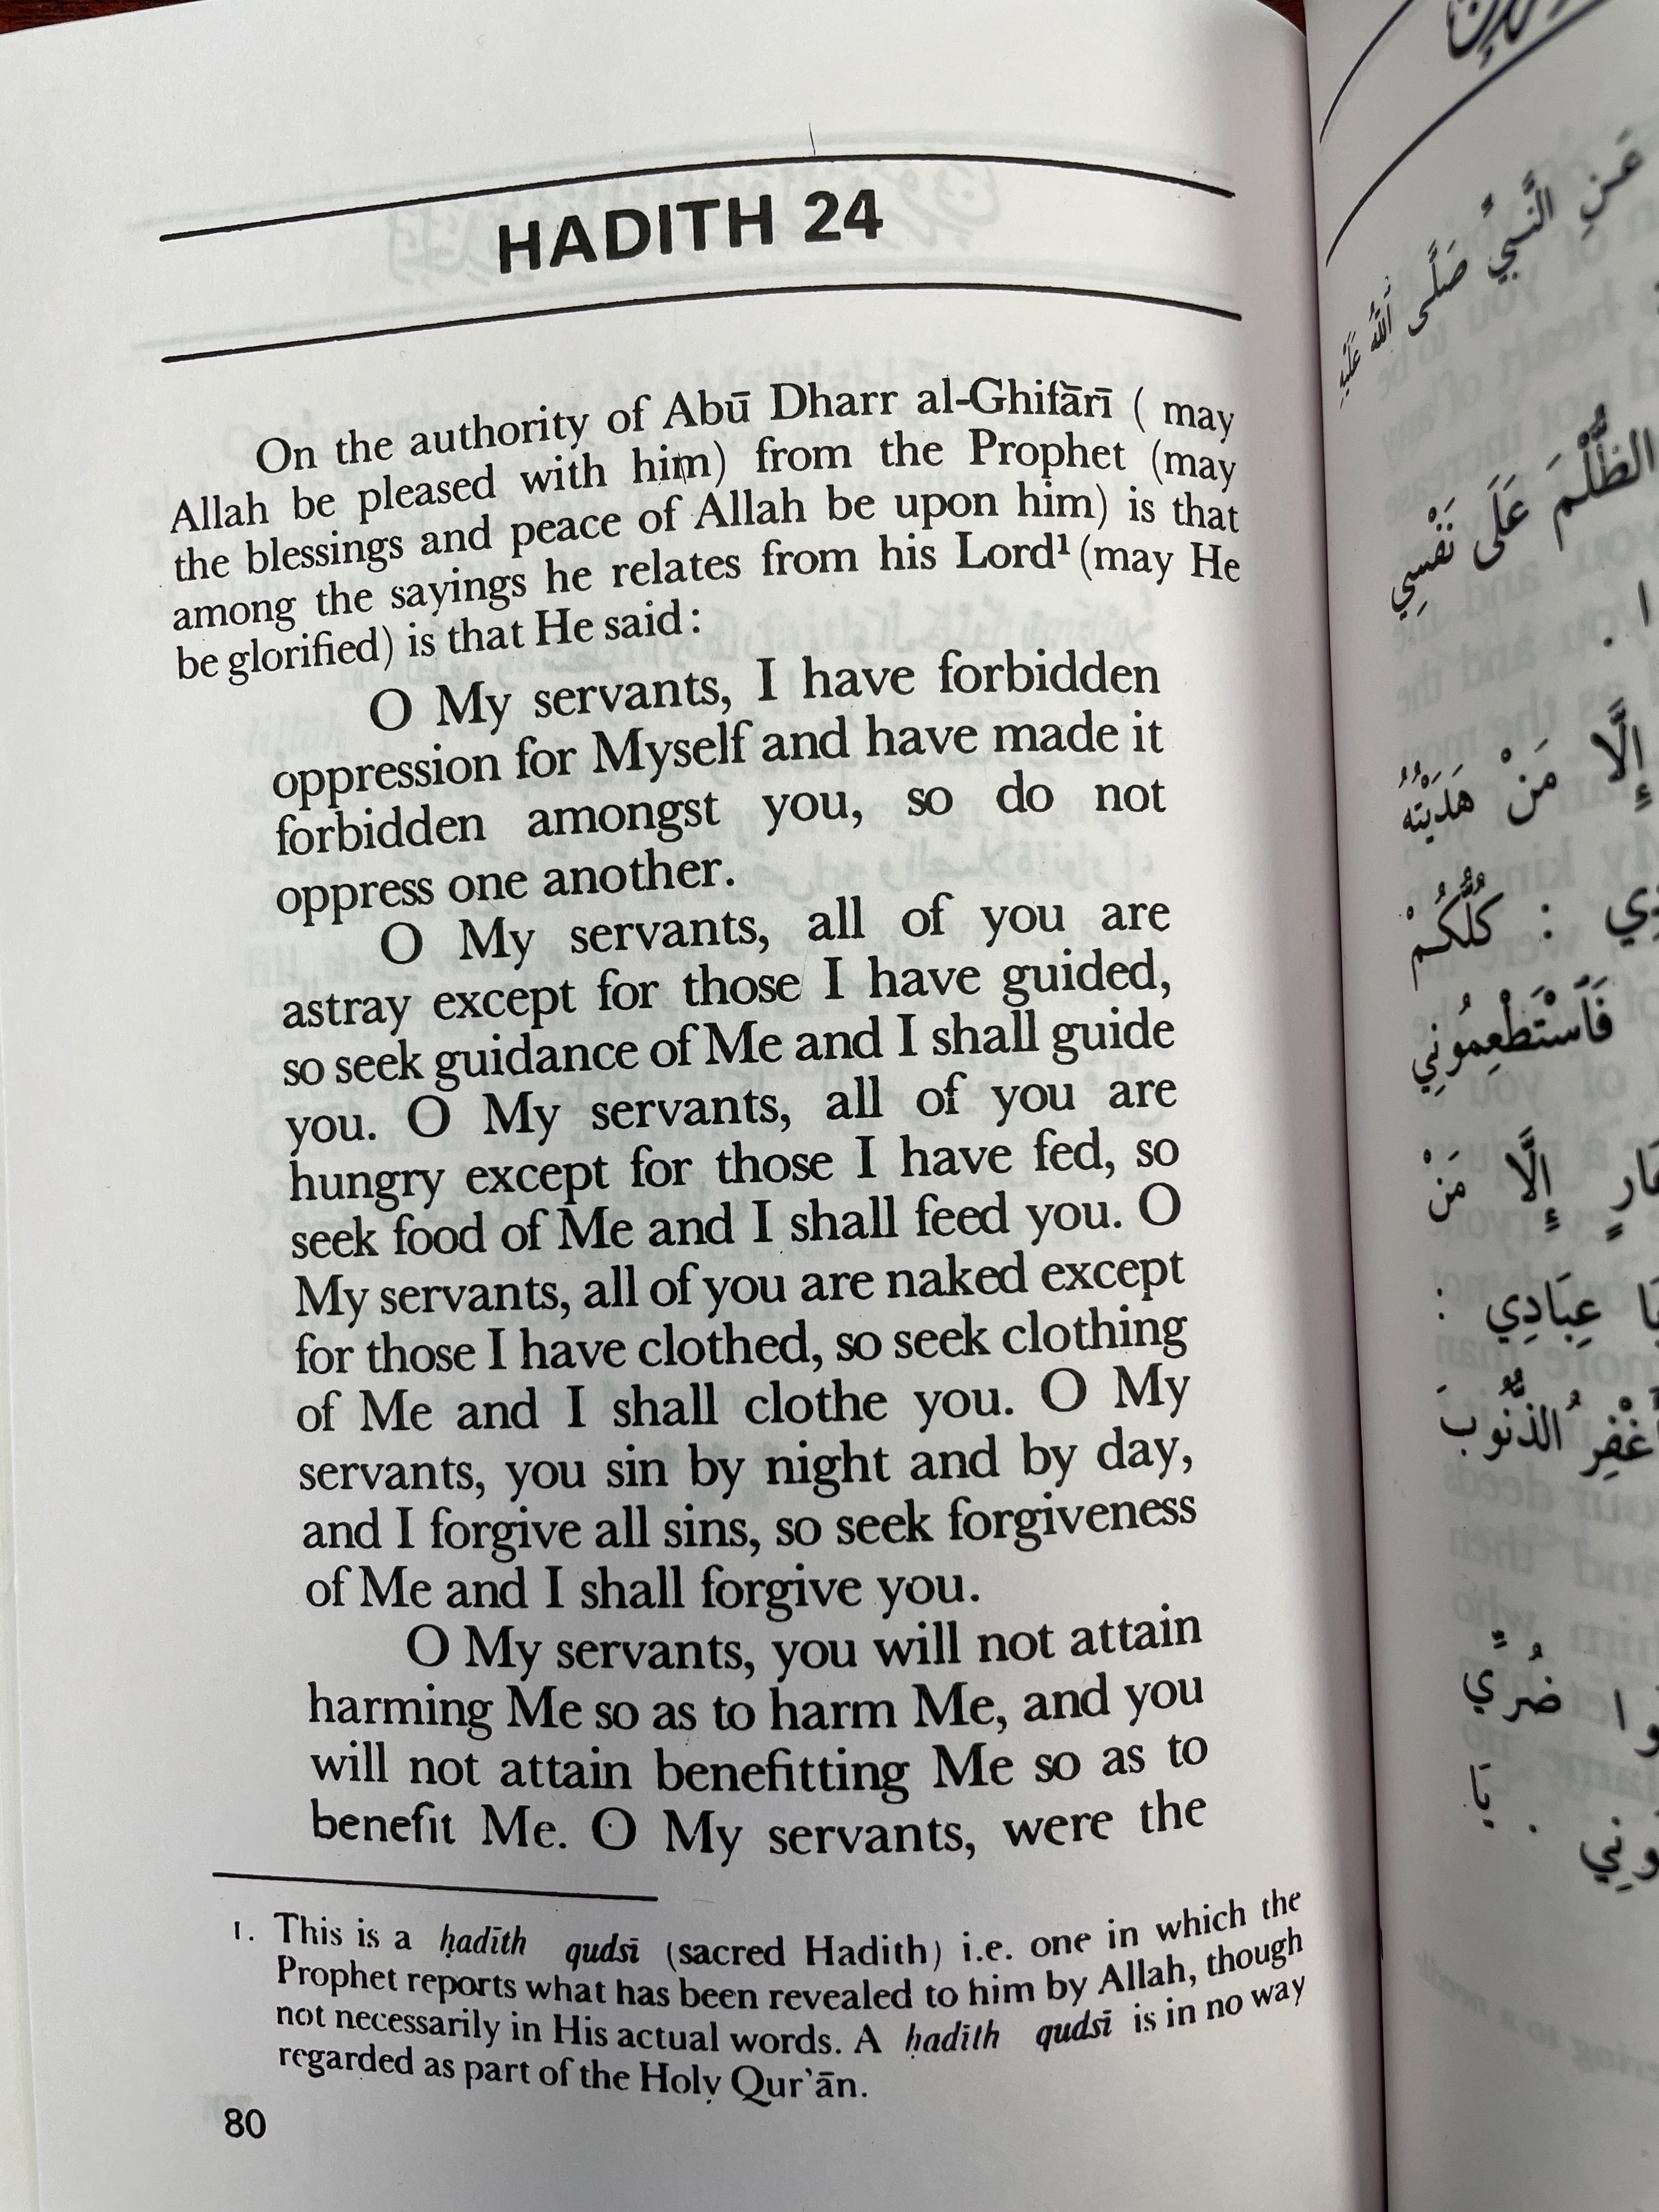 HADITH 24
On the authority of Abū Dharr al-Ghifārī ( may
Allah be pleased with him) from the Prophet (may
the blessings and peace of Allah be upon him) is that
among the sayings he relates from his Lord¹ (may He
be glorified) is that He said:
O My servants, I have forbidden
oppression for Myself and have made it
forbidden amongst you, so do not
oppress one another.
O My servants, all of you are
astray except for those I have guided,
so seek guidance of Me and I shall guide
you. O My servants, all of you are
hungry except for those I have fed, so
seek food of Me and I shall feed you. O
My servants, all of you are naked except
for those I have clothed, so seek clothing
of Me and I shall clothe you. O My
servants, you sin by night and by day,
and I forgive all sins, so seek forgiveness
of Me and I shall forgive you.
O My servants, you will not attain
harming Me so as to harm Me, and you
will not attain benefitting Me so as to
benefit Me. O My servants, were the
1. This is a ḥadīth qudsī (sacred Hadith) i.e. one in which the
Prophet reports what has been revealed to him by Allah, though
not necessarily in His actual words. A ḥadīth qudsī is in no way
regarded as part of the Holy Qur'ān.
80
عَنِ النَّبِيِّ صَلَّى اللَّهُ عَلَيْهِ
الظُّلْمَ عَلَى نَفْسِي
إِلَّا مَنْ هَدَيْتُهُ
: كُلُّكُمْ
فَاسْتَطْعِمُونِي
إِلَّا مَنْ
يَا عِبَادِي :
أَغْفِرُ الذُّنُوبَ
ضُرِّي
يَا